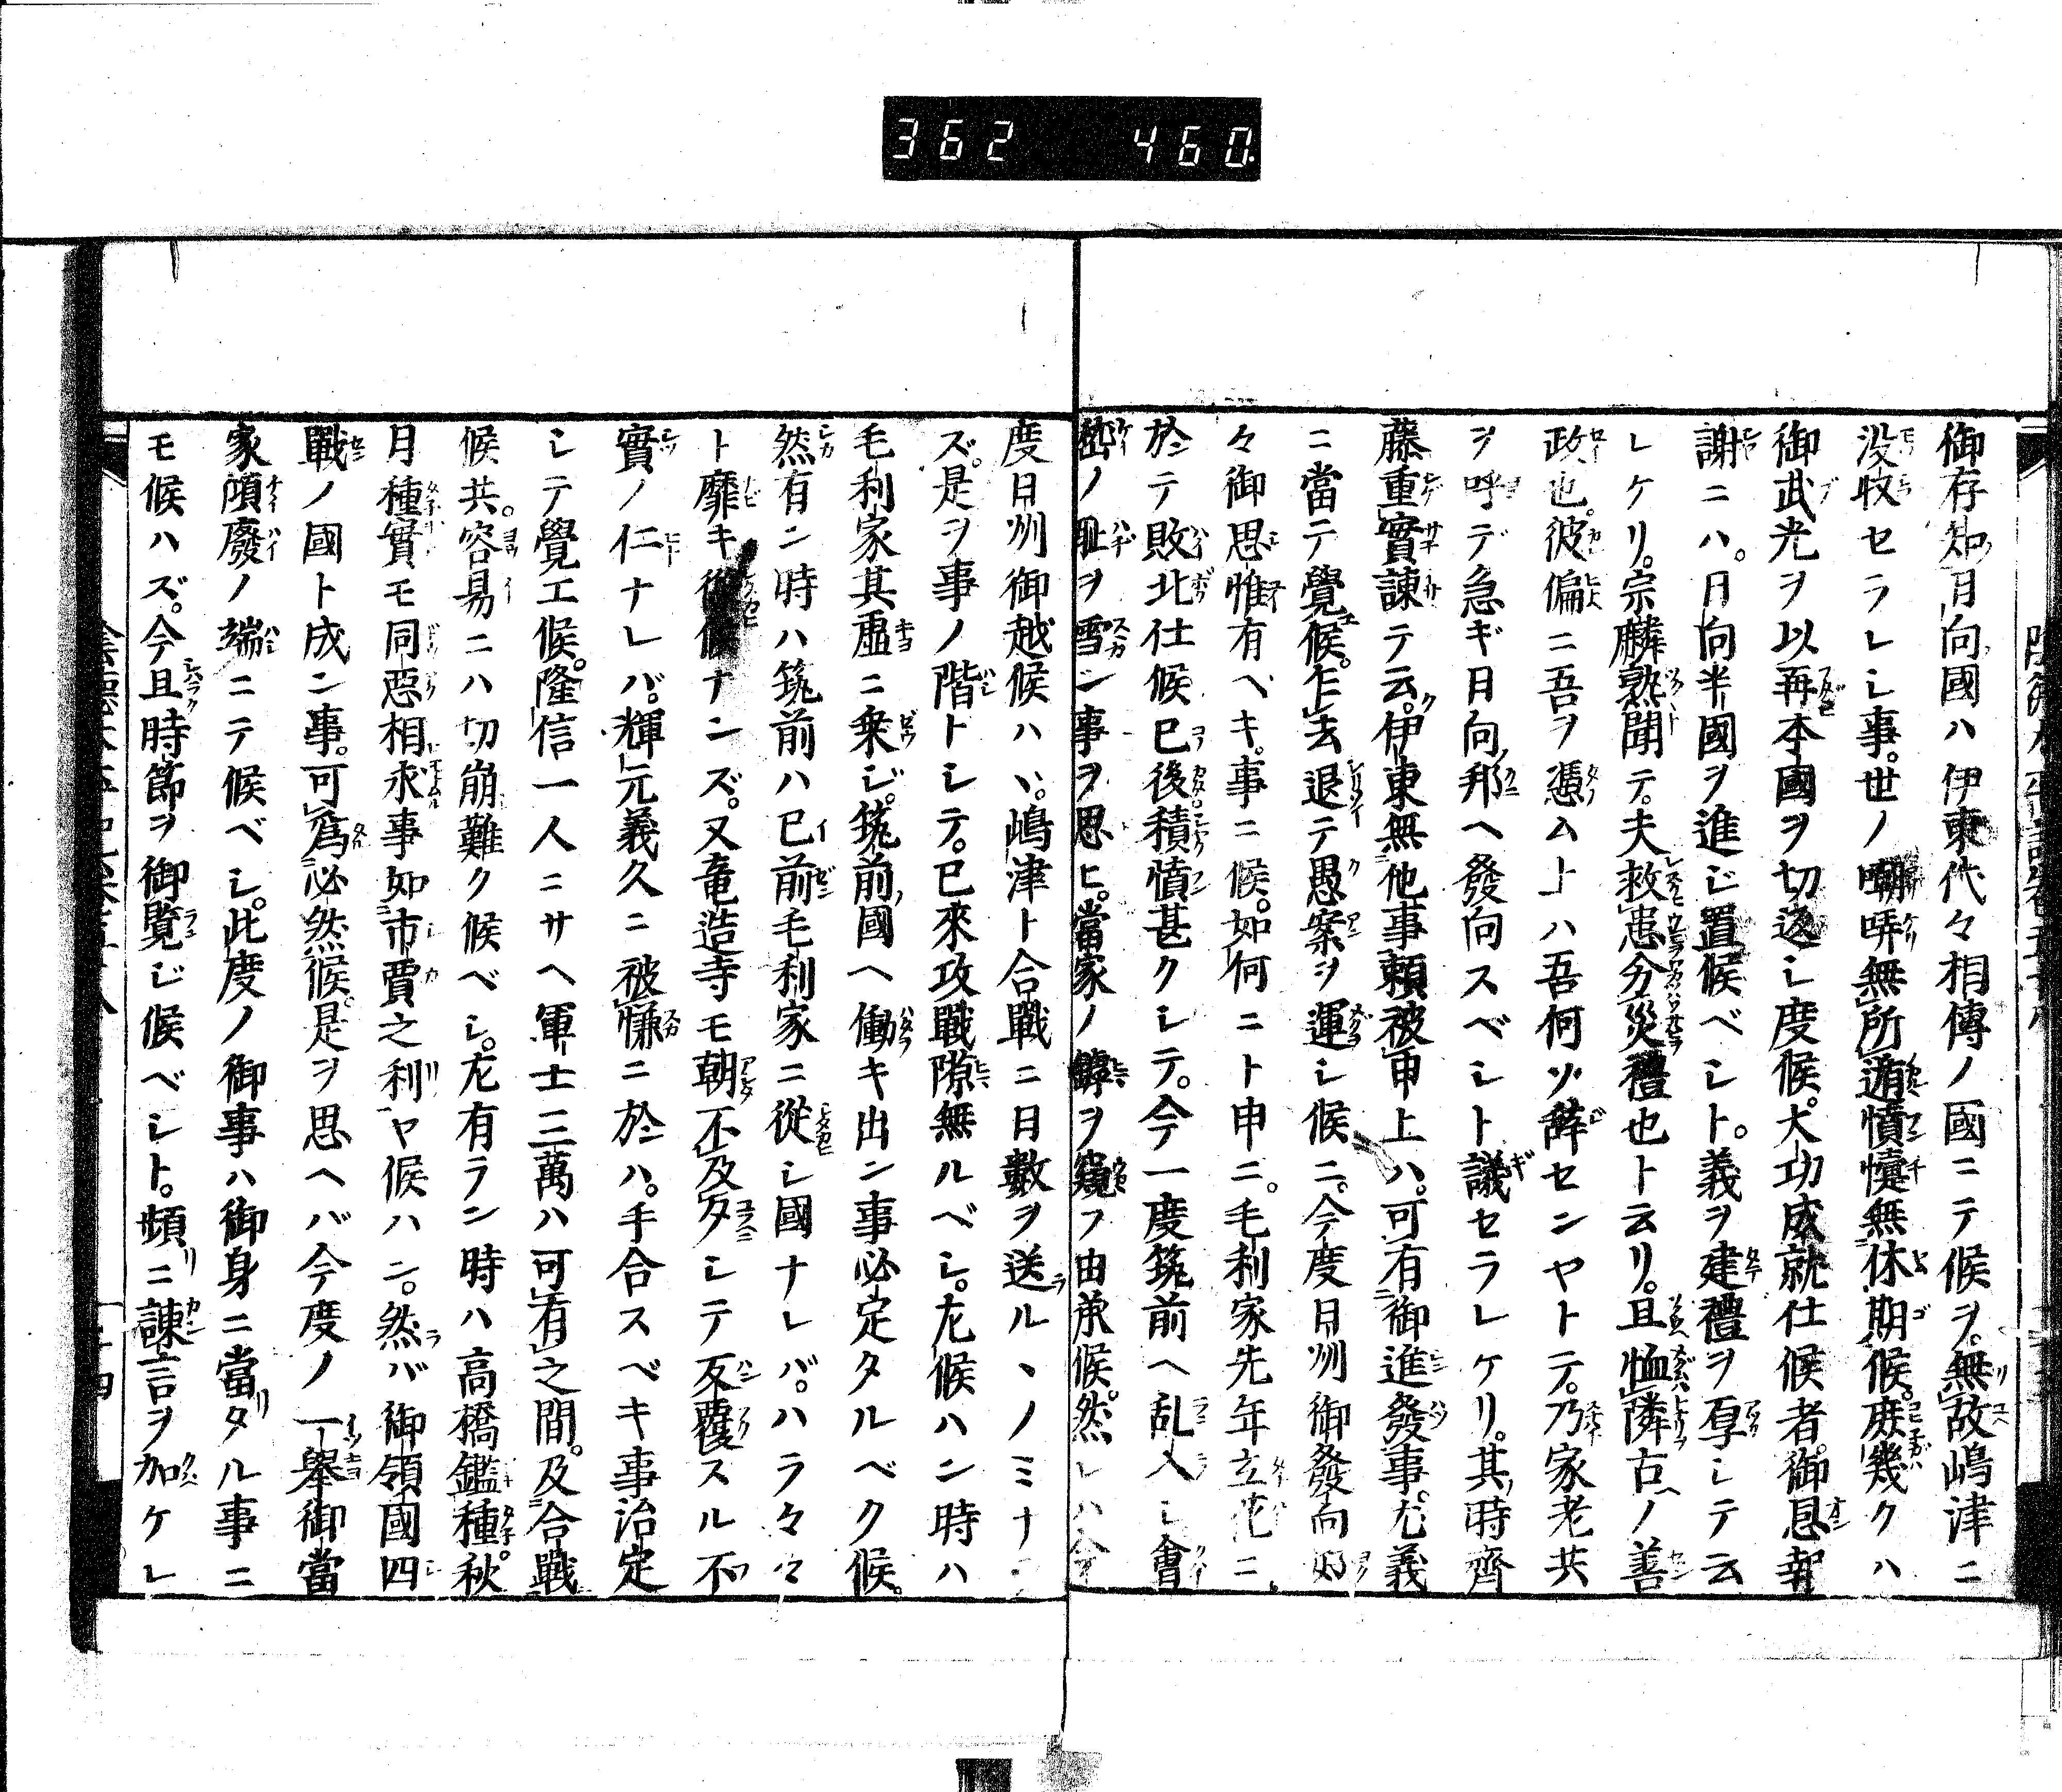 362 460.
御存知日向國ハ伊東代々相傳ノ國ニテ候ヲ。無故嶋津ニ
没收セラレシ事。世ノ嘲哢無所遁憤懥無休期候。庶幾クハ
御武光ヲ以再本國ヲ切返シ度候。大功成就仕候者。御恩報
謝ニハ。日向半國ヲ進ジ置候ベシト。義ヲ建禮ヲ厚シテ云
レケリ。宗麟熟聞テ。夫救患分災禮也ト云リ。且恤隣古ノ善
政也。彼偏ニ吾ヲ憑ム上ハ吾何ソ辞センヤトテ。乃家老共
ヲ呼デ急ギ日向ノ邦ヘ發向スベシト議セラレケリ。其時齊
藤重實諫テ云ク。伊東無他事頼被申上ハ。可有御進發事。尤義
ニ當テ覺候。乍去退テ愚案ヲ運シ候ニ。今度日州御發向好
々御思惟有ベキ。事ニ候。如何ニト申ニ。毛利家先年立花ニ
於テ敗北仕候已後積憤甚クシテ。今一度筑前ヘ乱入シ會
嵆ノ恥ヲ雪ン事ヲ思ヒ。當家ノ罅ヲ窺フ由承候。然レハ今
度日州御越候ハヾ。嶋津ト合戰ニ日數ヲ送ルヽノミナ
ズ。是ヲ事ノ階トシテ。已來攻戰隙無ルベシ。左候ハン時ハ
毛利家其虚ニ乗ジ。筑前ノ國ヘ働キ出ン事必定タルベク候。
然有ン時ハ筑前ハ已前毛利家ニ從シ國ナレバ。ハラ々々
ト靡キ從候ナンズ。又竜造寺モ朝不及夕シテ反覆スル不
實ノ仁ナレバ。輝元義久ニ被慊ニ於ハ。手合スベキ事治定
シテ覺エ候。隆信一人ニサヘ軍士三萬ハ可有之間。及合戰
候共。容易ニハ切崩難ク候ベシ。左有ラン時ハ高橋鑑種。秋
月種實モ同惡相求事如市賈之利ヤ候ハン。然ラバ御領國四
戰ノ國ト成ン事。可爲必然候。是ヲ思ヘバ今度ノ一擧御當
家頽廢ノ端ニテ候ベシ。此度ノ御事ハ御身ニ當リタル事ニ
モ候ハズ。今且時節ヲ御覽ジ候ベシト。頻リニ諫言ヲ加ケレ